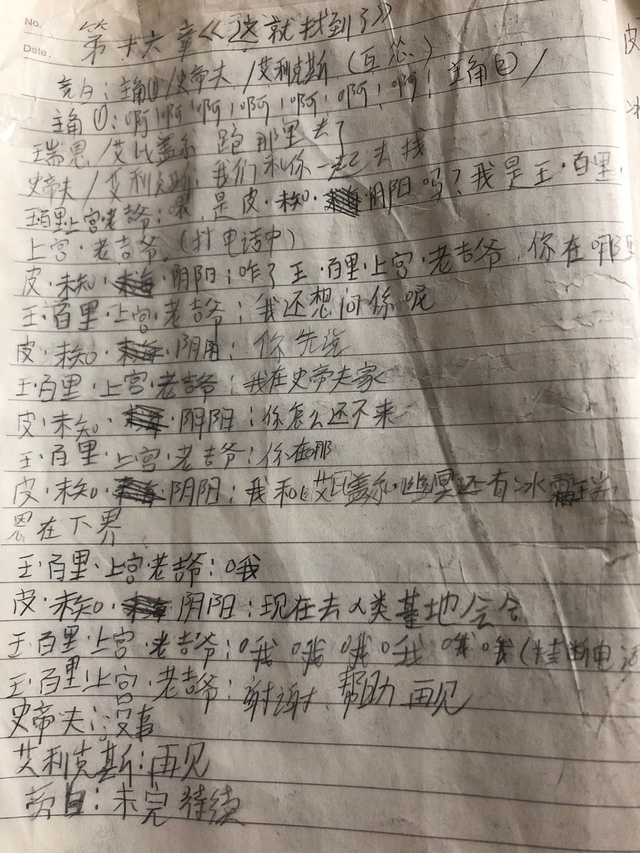 No.
Date.
第十六章《这就找到了》
旁白：主角①/史帝夫/艾利克斯（互怼）
主角①：啊！啊！啊！啊！啊！啊！啊！主角②/
瑞恩/艾比盖尔 跑那里去了
史帝夫/艾利克斯：我们和你一起去找
王百里上宫老吉爷：喂，是皮·未知·阴阳吗？我是王·百里·
上宫·老吉爷（打电话中）
皮·未知·阴阳：咋了王·百里·上宫·老吉爷 你在哪里
王·百里·上宫·老吉爷：我还想问你呢
皮·未知·阴阳：你先说
王·百里·上宫·老吉爷：我在史帝夫家
皮·未知·阴阳：你怎么还不来
王·百里·上宫·老吉爷：你在那
皮·未知·阴阳：我和艾比盖尔·幽冥还有冰霜瑞
恩在下界
王·百里·上宫老吉爷：哦
皮·未知·阴阳：现在去人类基地会合
王·百里·上宫·老吉爷：哦哦哦哦哦哦（挂断电话
王·百里·上宫·老吉爷：谢谢 帮助 再见
史帝夫：没事
艾利克斯：再见
旁白：未完待续
皮
冰